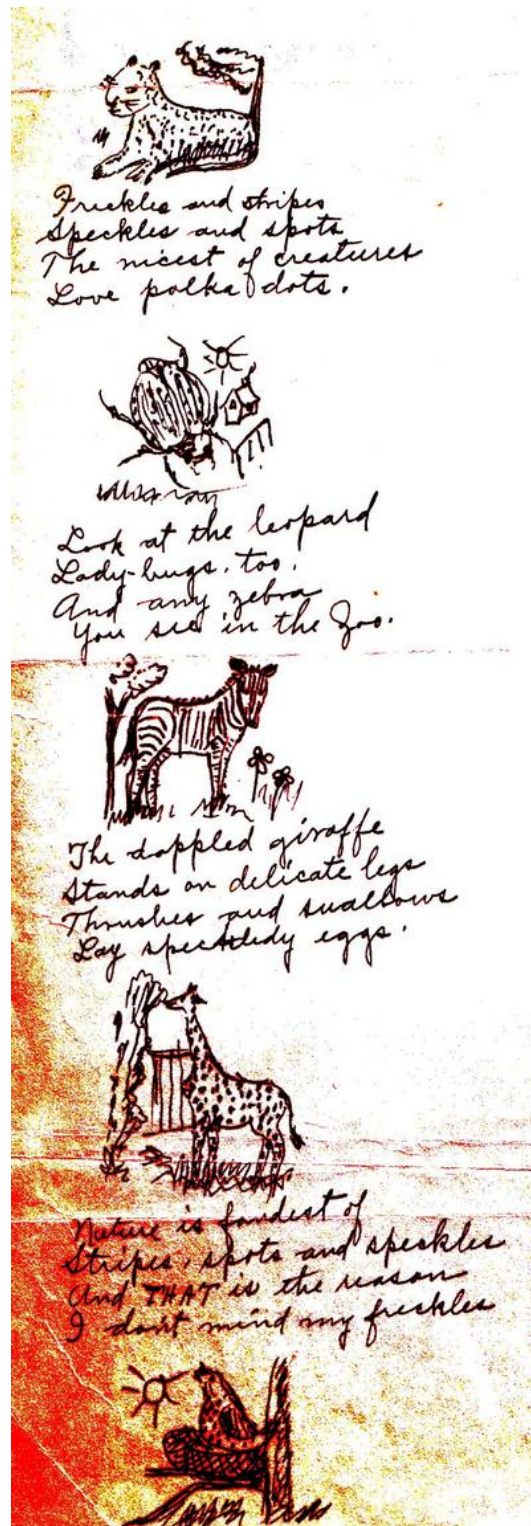 Freckles and stripes
Speckles and spots
The nicest of creatures
Love polka dots.
Look at the leopard
Lady-bugs, too,
And any zebra
You see in the Zoo.
The dappled giraffe
Stands on delicate legs
Thrushes and swallows
Lay speckledy eggs.
Nature is fondest of
Stripes, spots and speckles
And THAT is the reason
I don't mind my freckles